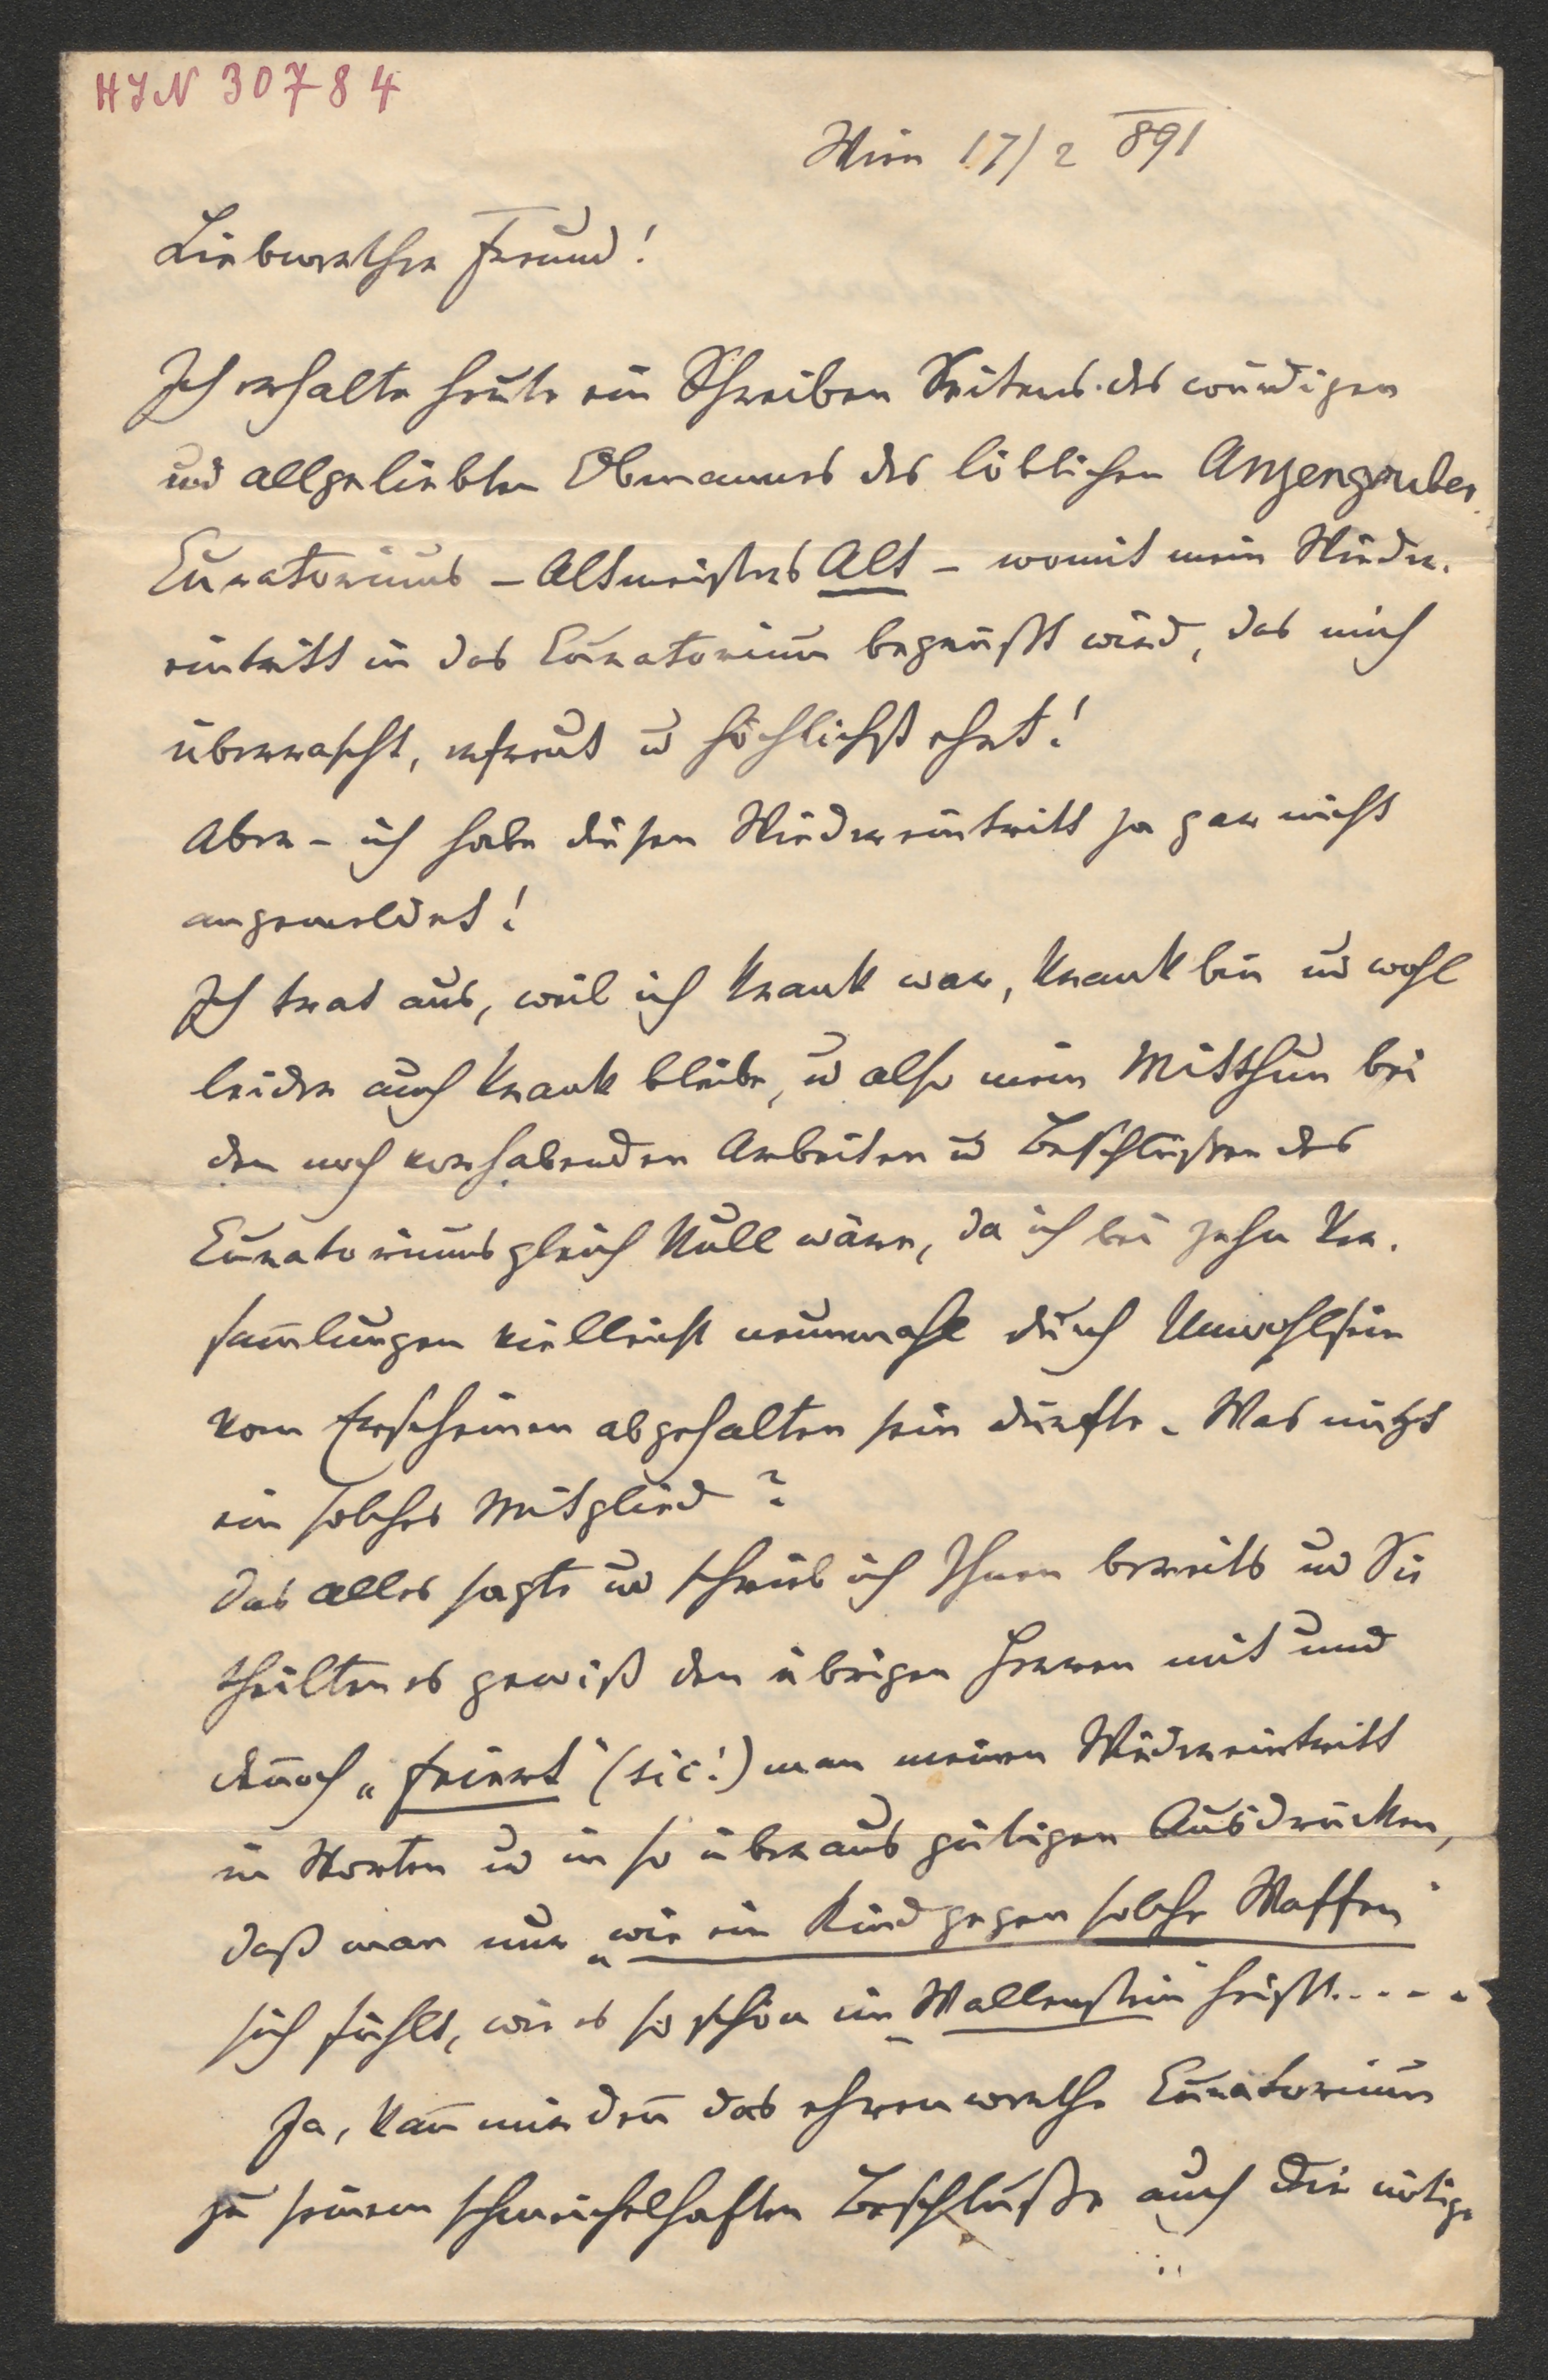 HIN 30784
Wien 17/2 891
Liebwerther Freund!
Ich erhalte heute ein Schreiben Seitens des würdigen
und allgeliebten Obmannes des löblichen Anzengruber
Curatoriums – Altmeisters Alt – womit mein Wieder-
eintritt in das Curatorium begrüßt wird, das mich
überrascht, erfreut u höchlichst ehrt!
Aber – ich habe diesen Wiedereintritt ja gar nicht
angemeldet!
Ich trat aus, weil ich krank war, krank bin und wohl
leider auch krank bleibe, u also mein Mitthun bei
den noch vorhabenden Arbeiten u Beschlüßen des
Curatoriums gleich Null wäre, da ich bei zehn Ver-
sam̄lungen vielleicht neunmahl durch Unwohlsein
vom Erscheinen abgehalten sein dürfte. Was nützt
ein solches Mitglied?
Das alles sagte und schrieb ich Ihnen bereits und Sie
theilten es gewiß den übrigen Herren mit und
den̄och „feiert" (sic!) man meinen Wiedereintritt
in Worten und in so überaus gütigen Ausdrücken,
daß man nur „wie ein Kind gegen solche Waffen"
sich fühlt, wie es so schön im „Wallenstein" heißt.....
Ja, kan̄ mir den̄ das ehrenwerthe Curatorium
zu seinem schmeichelhaften Beschluße auch die nötige